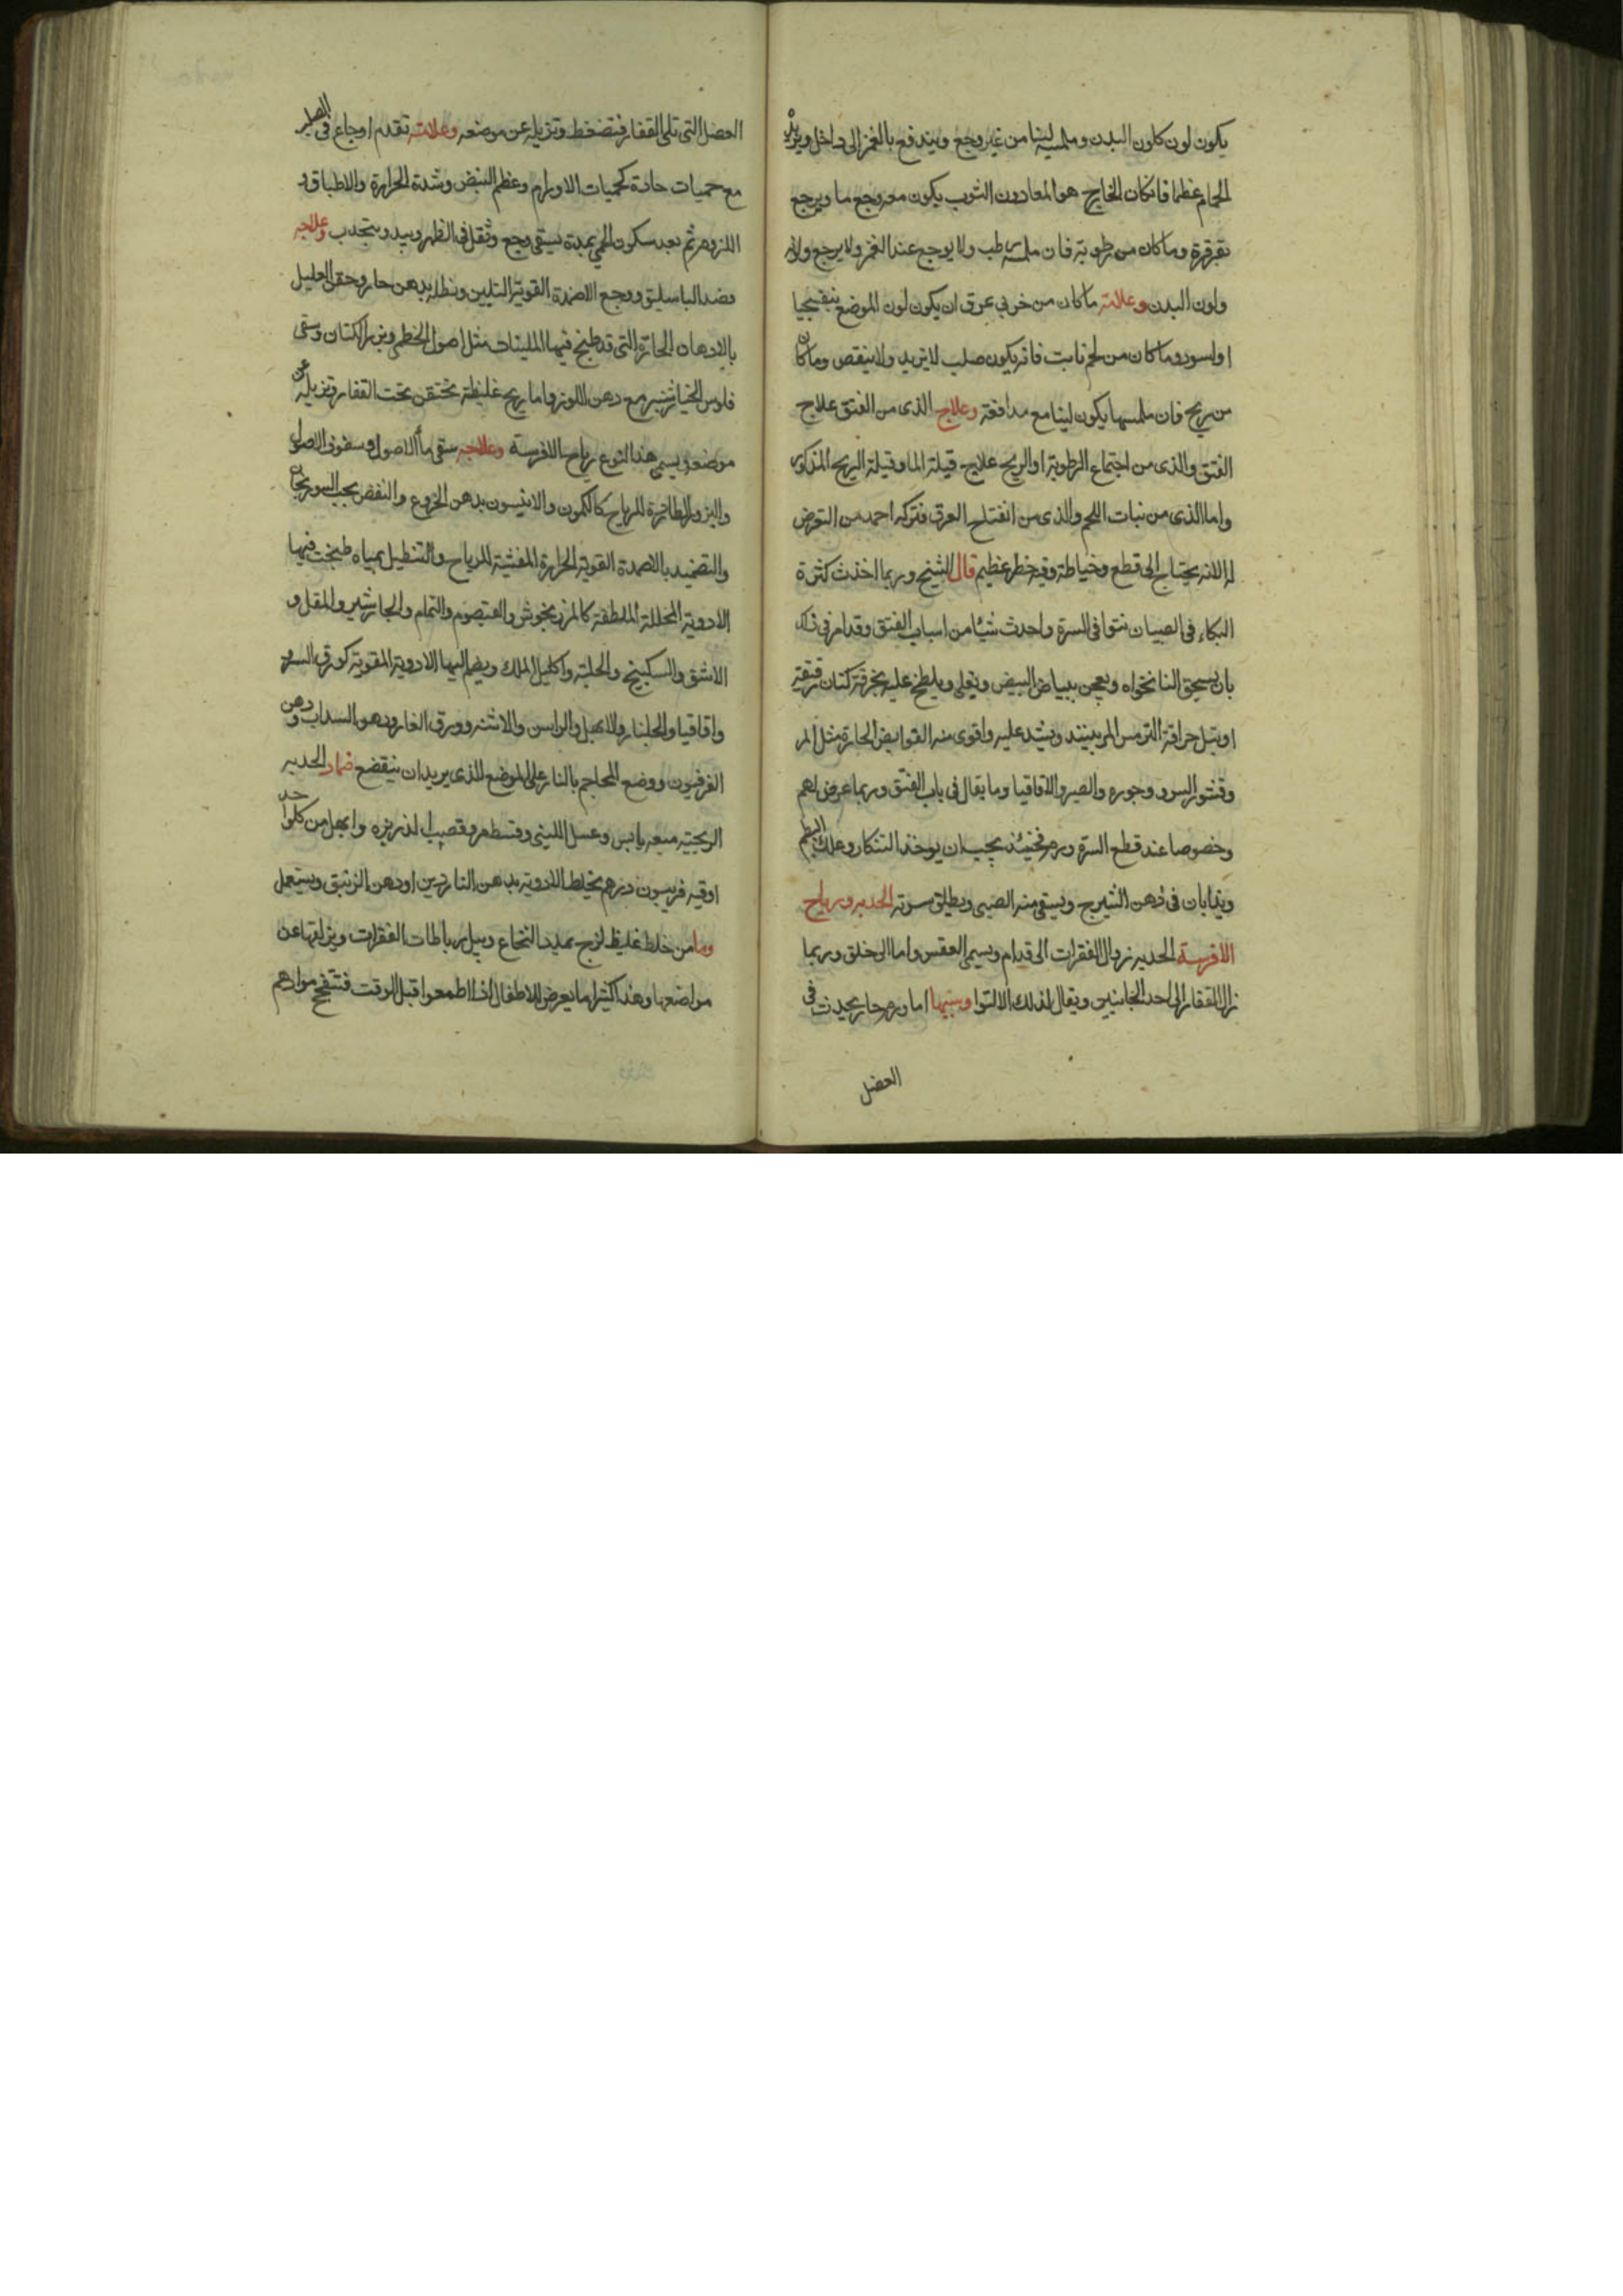 يكون لون كلون البدن وملسه لينا من غير وجع ويندفع بالغمز الى داخل ويزيد
الحمام عظما فان كان الخارج هو المعا دون الثرب يكون معه وجع ما ويرجع
بقرقرة وما كان من رطوبة فان ملسه رطب ولا يوجع عند الغمز ولا يرجع ولونه
ولون البدن وعلامة ما كان من خرق عرق ان يكون لون الموضع بنفسجيا
او اسود وما كان من لحم نابت فانه يكون صلب لا يزيد ولا ينقص وما كان
من ريح فان ملمسها يكون لينا مع مدافعة وعلاج الذى من الفتق علاج
الفتق والذى من اجتماع الرطوبة او الريح علاج قيلة الما وقيلة الريح المذكور
واما الذى من نبات اللحم والذى من انفتاح العرق فتركه احمد من التعرض
له لانه يحتاج الى قطع وخياطة وفيه خطر عظيم قال الشيخ وربما اخذت كثرة
البكاء فى الصبيان نتوا فى السرة واحدث شيئا من اسباب الفتق وقد امر فى ذلك
بان يسحق النانخواه ويعجن ببياض البيض ويعلى ويلطخ عليه بخرقة كتان رقيقة
او بتل حراقة الترمس المر بنبيذ ويشد عليه واقوى منه القوابض الحارة مثل المر
وقشور السرو وجوزه والصبر والاقاقيا وما يقال فى باب الفتق وربما عرض لهم
وخصوصا عند قطع السرة ورم فحينئذ يجب ان يوخذ الشنكار وعلك البطم
ويذابان فى دهن الشيرج ويسقى منه الصبى ويطلى سرته الحدبه ورياح
الافرسة الحدبه زوال الفقرات الى قدام ويسمى العقس واما الى خلق وربما
زال الفقار الى احد الجانبين ويقال لذلك الالتوا وسببها اما ورم حار يحدث فى
العضل
العضل التى تلى الفقار فتضغط وتزيله عن موضعه وعلامته تقدم اوجاع فى الصلب
مع حميات حادة كحميات الاورام وعظم النبض وشدة الحرارة والاطباق و
اللزوم ثم بعد سكون الحمى بمدة يبقى وجع وثقل فى الظهر ويبدو يتحدب وعلاجه
فصد الباسليق ووجع الاضمدة القوية التليين ونطله بدهن حار وحقن العليل
بالادهان الحارة التى قد طبخ فيها الملينات مثل اصول الخطمى وبزر الكتان وسقى
فلوس الخيار شنبر مع دهن اللوز واما ريح غليظة تحتقن تحت الفقار وتزيله عن
موضعه ويسمى هذا النوع رياح الافرسة وعلاجه سقى ما الاصول وسفوف الاصول
والبزور الطاردة للرياح كالكمون والانيسون بدهن الخروع والنفض بحب السورنجان
والتضميد بالاضمدة القوية الحرارة المفشية للرياح والتنطيل بمياه طبخت فيها
الادوية المحللة الملطفة كالمرزنجوش والقيصوم والثمام والجاوشير والمقل و
الاشق والسكبينج والحلبة واكليل الملك ويضم اليها الادوية المقوية كورق السرو
واقاقيا والجلنار والابهل والراسن والاشنه وورق الغار ودهن السداب ودهن
الفرفيون ووضع المحاجم بالنار على الموضع الذى يريد ان ينقضع ضماد الحدبه
الريحية ميعه يابس وعسل اللبنى وقسط مر وقصب الذريره وابهل من كل واحد
اوقيه فربيون درهم يخلط الادوية بدهن الناردين او دهن الزنبق ويستعمل
وما من خلط غليظ لزج يمدد النخاع ويبل رباطات الفقرات ويزلقها عن
مواضعها وهذا كثيرا ما يعرض للاطفال اذا اطعموا قبل الوقت فتنفخ موادهم